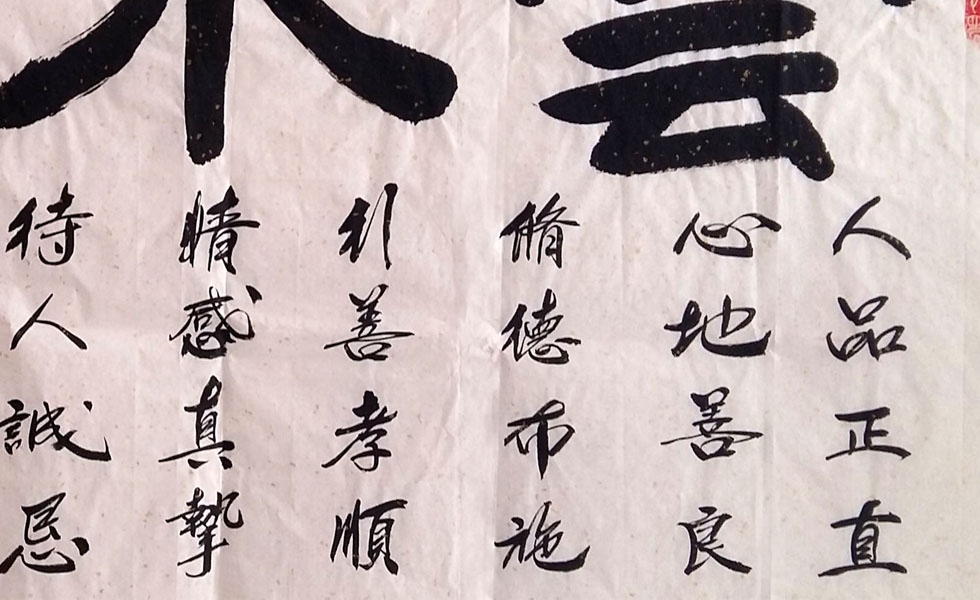 人品正直
心地善良
脩德布施
引善孝順
情感真摯
待人誠恳